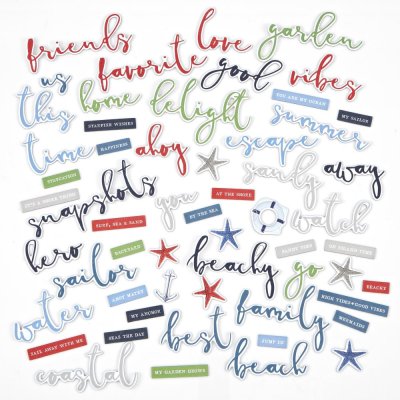 friends
love
garden
us
favorite
good
vibes
this
home
delight
YOU ARE MY OCEAN
MY SAILOR
STARFISH WISHES
summer
time
HAPPINESS
ahoy
escape
STAYCATION
IT'S A SHORE THING
snapshots
sandy
away
you
AT THE SHORE
SURF, SEA & SAND
BY THE SEA
watch
hero
BACKYARD
beachy
SANDY TOES
ON ISLAND TIME
go
BEACHY
sailor
HIGH TIDES + GOOD VIBES
water
AHOY MATEY
MY ANCHOR
family
MERMAIDS
SAIL AWAY WITH ME
SEAS THE DAY
best
JUMP IN
coastal
MY GARDEN GROWS
beach